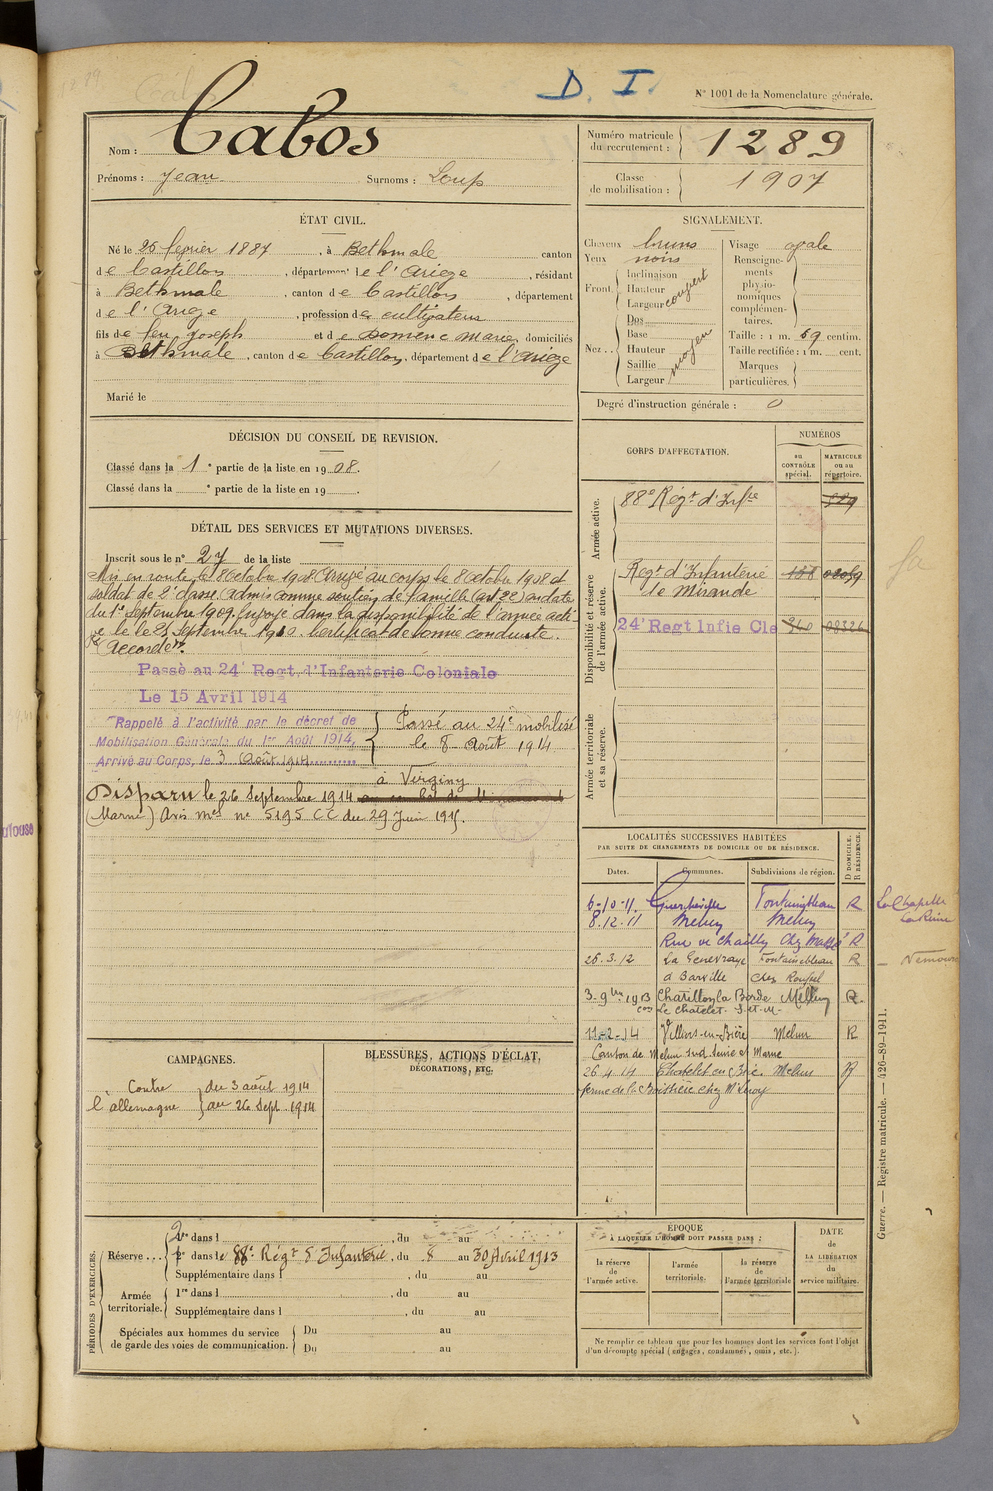 D. I.
N° 1001 de la Nomenclature générale.
Nom : Cabos
Prénoms : Jean Surnoms : Loup
Numéro matricule du recrutement : 1289
Classe de mobilisation : 1907
ÉTAT CIVIL.
Né le 25 février 1887, à Bethmale canton
de Castillon, département de l'Ariège, résidant
à Bethmale, canton de Castillon, département
de l'Ariège, profession de cultivateur
fils de feu Joseph et de Domenc Marie, domiciliés
à Bethmale, canton de Castillon, département de l'Ariège
Marié le
SIGNALEMENT.
Cheveux bruns
Yeux noirs
Front
Inclinaison
Hauteur
Largeur
Nez
Dos
Base
Hauteur
Saillie
Largeur
moyen
Visage ovale
Renseignements physionomiques complémentaires.
Taille : 1 m. 69 centim.
Taille rectifiée : 1 m. cent.
Marques particulières.
Degré d'instruction générale : 0
DÉCISION DU CONSEIL DE REVISION.
Classé dans la 1e partie de la liste en 1908.
Classé dans la e partie de la liste en 19 .
DÉTAIL DES SERVICES ET MUTATIONS DIVERSES.
Inscrit sous le n° 27 de la liste
Mis en route le 8 Octobre 1908 Arrivé au corps le 8 Octobre 1908 et
soldat de 2e classe. Admis comme soutien de famille (art 22) en date
du 1er Septembre 1909. Envoyé dans la disponibilité de l'armée acti-
ve le 25 Septembre 1910. Certificat de bonne conduite.
Accordé.
Passé au 24e Regt. d'Infanterie Coloniale
Le 15 Avril 1914
Rappelé à l'activité par le décret de
Mobilisation Générale du 1er Août 1914,
Arrivé au Corps, le 3 Août 1914
Passé au 24e mobilisé
le 8 Août 1914
à Virginy
Disparu le 26 Septembre 1914
(Marne) Avis mel n° 5195 CC du 29 Juin 1915.
CORPS D'AFFECTATION.
NUMÉROS
au CONTRÔLE spécial.
MATRICULE ou au répertoire.
Armée active.
88e Régt d'Infie 589
Disponibilité et réserve de l'armée active.
Regt d'Infanterie de Mirande 158 02059
24e Regt Infie Cle 340 08326
Armée territoriale et sa réserve.
LOCALITÉS SUCCESSIVES HABITÉES
PAR SUITE DE CHANGEMENTS DE DOMICILE OU DE RÉSIDENCE.
Dates. Communes. Subdivisions de région. D DOMICILE. R RÉSIDENCE.
6-10-11. Guercheville Fontainebleau R La Chapelle la Reine
8.12.11 Melun Melun
Rue de Chailly chez Massé R
26.3.12 La Genevraye Fontainebleau R Nemours
à Barville chez
3-9bre 1913 Chatillon la Borde Melun R.
con Le Chatelet. S.et.M-
11-2-14 Villiers-en-Bière Melun R
Canton de Melun sud Seine et Marne
26 4 14 Chatelet en Brie. Melun R
ferme de la Boissière chez Mr Leroy
CAMPAGNES.
Contre l'allemagne du 3 août 1914 au 26 Sept 1914
BLESSURES, ACTIONS D'ÉCLAT,
DÉCORATIONS, ETC.
PÉRIODES D'EXERCICES.
Réserve
dans l , du au
dans le 88e Régt d'Infanterie, du 8 au 30 Avril 1913
Supplémentaire dans l , du au
Armée territoriale.
1re dans l , du au
Supplémentaire dans l , du au
Spéciales aux hommes du service de garde des voies de communication.
Du au
Du au
ÉPOQUE
À LAQUELLE L'HOMME DOIT PASSER DANS :
la réserve de l'armée active.
l'armée territoriale.
la réserve de l'armée territoriale
DATE de LA LIBÉRATION du service militaire.
Ne remplir ce tableau que pour les hommes dont les services font l'objet
d'un décompte spécial (engagés, condamnés, omis, etc.).
Guerre. — Registre matricule. — 426-89-1911.